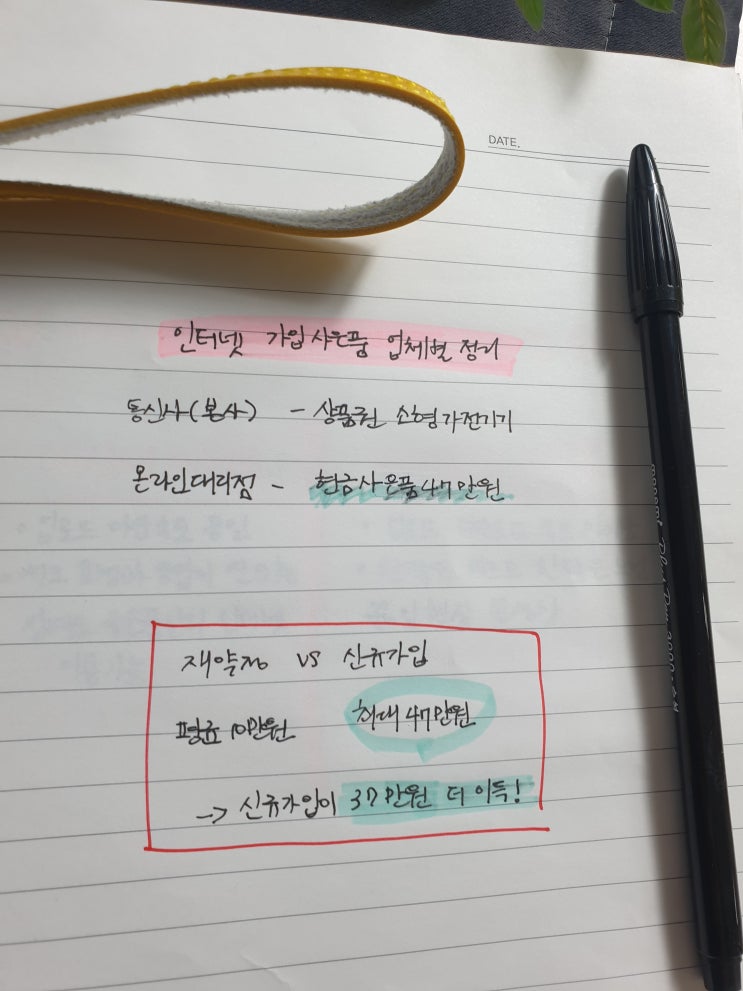 DATE.
인터넷 가입사은품 업체별 정리
통신사(본사) - 상품권 소형가전기기
온라인대리점 - 현금사은품 47만원
재약정 vs 신규가입
평균 10만원 최대 47만원
-> 신규가입이 37만원 더 이득!